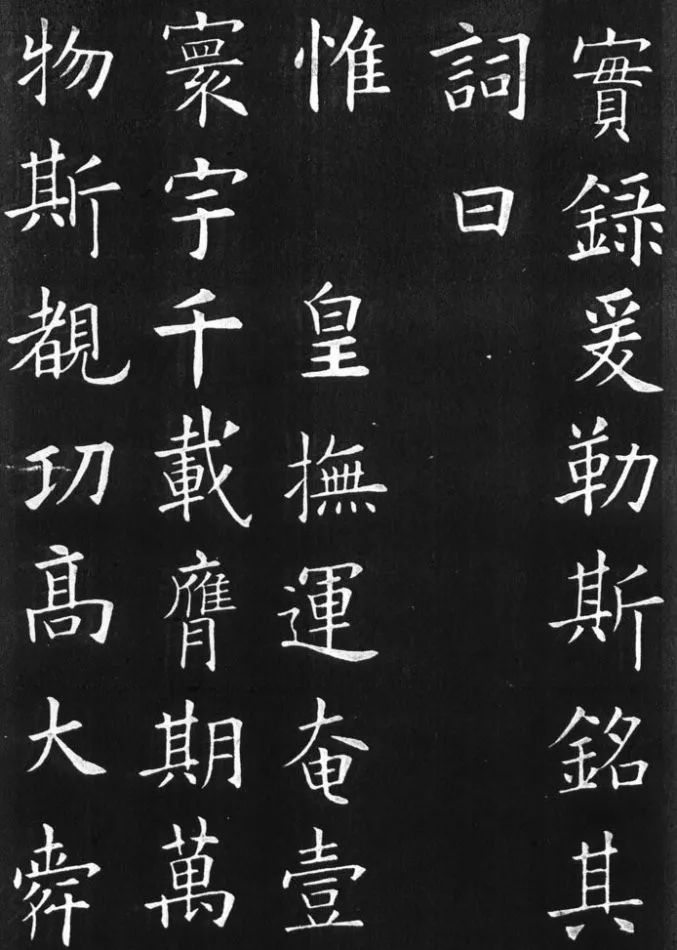 實錄爰勒斯銘其
詞曰
惟皇撫運奄壹
寰宇千載膺期萬
物斯覩功髙大舜